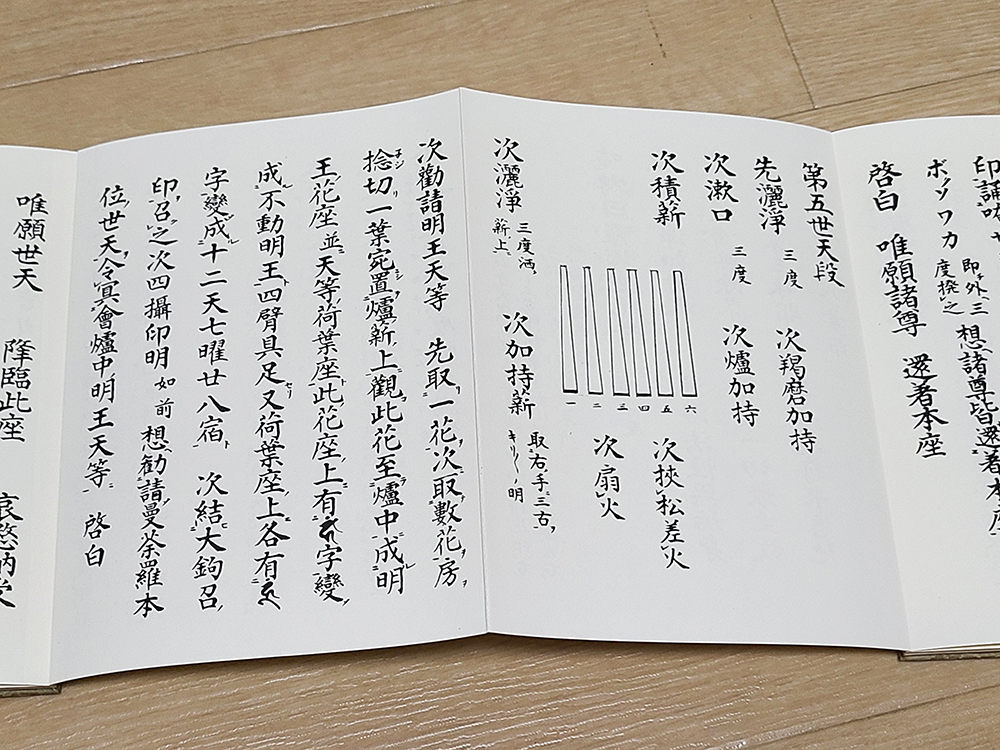 印誦
ボゾワカ 即外ニ三度撥之 想諸尊皆還著本座
啓白 唯願諸尊 還著本座
第五世天段
先灑淨 三度 次羯磨加持
次漱口 三度 次爐加持
次積薪
一 二 三 四 五 六
次挾松差火
次扇火
次灑淨 三度洒薪上 次加持薪 取右手三古キリ〱明
次勸請明王天等 先取一花次取數花房
捻切一葉宛置爐薪上觀此花至爐中成明
王花座並天等荷葉座此花座上有字變
成不動明王四臂具足又荷葉座上各有
字變成十二天七曜廿八宿 次結大鉤召
印召之次四攝印明 如前 想勸請曼荼羅本
位世天令冥會爐中明王天等 啓白
唯願世天 降臨此座 哀愍納受